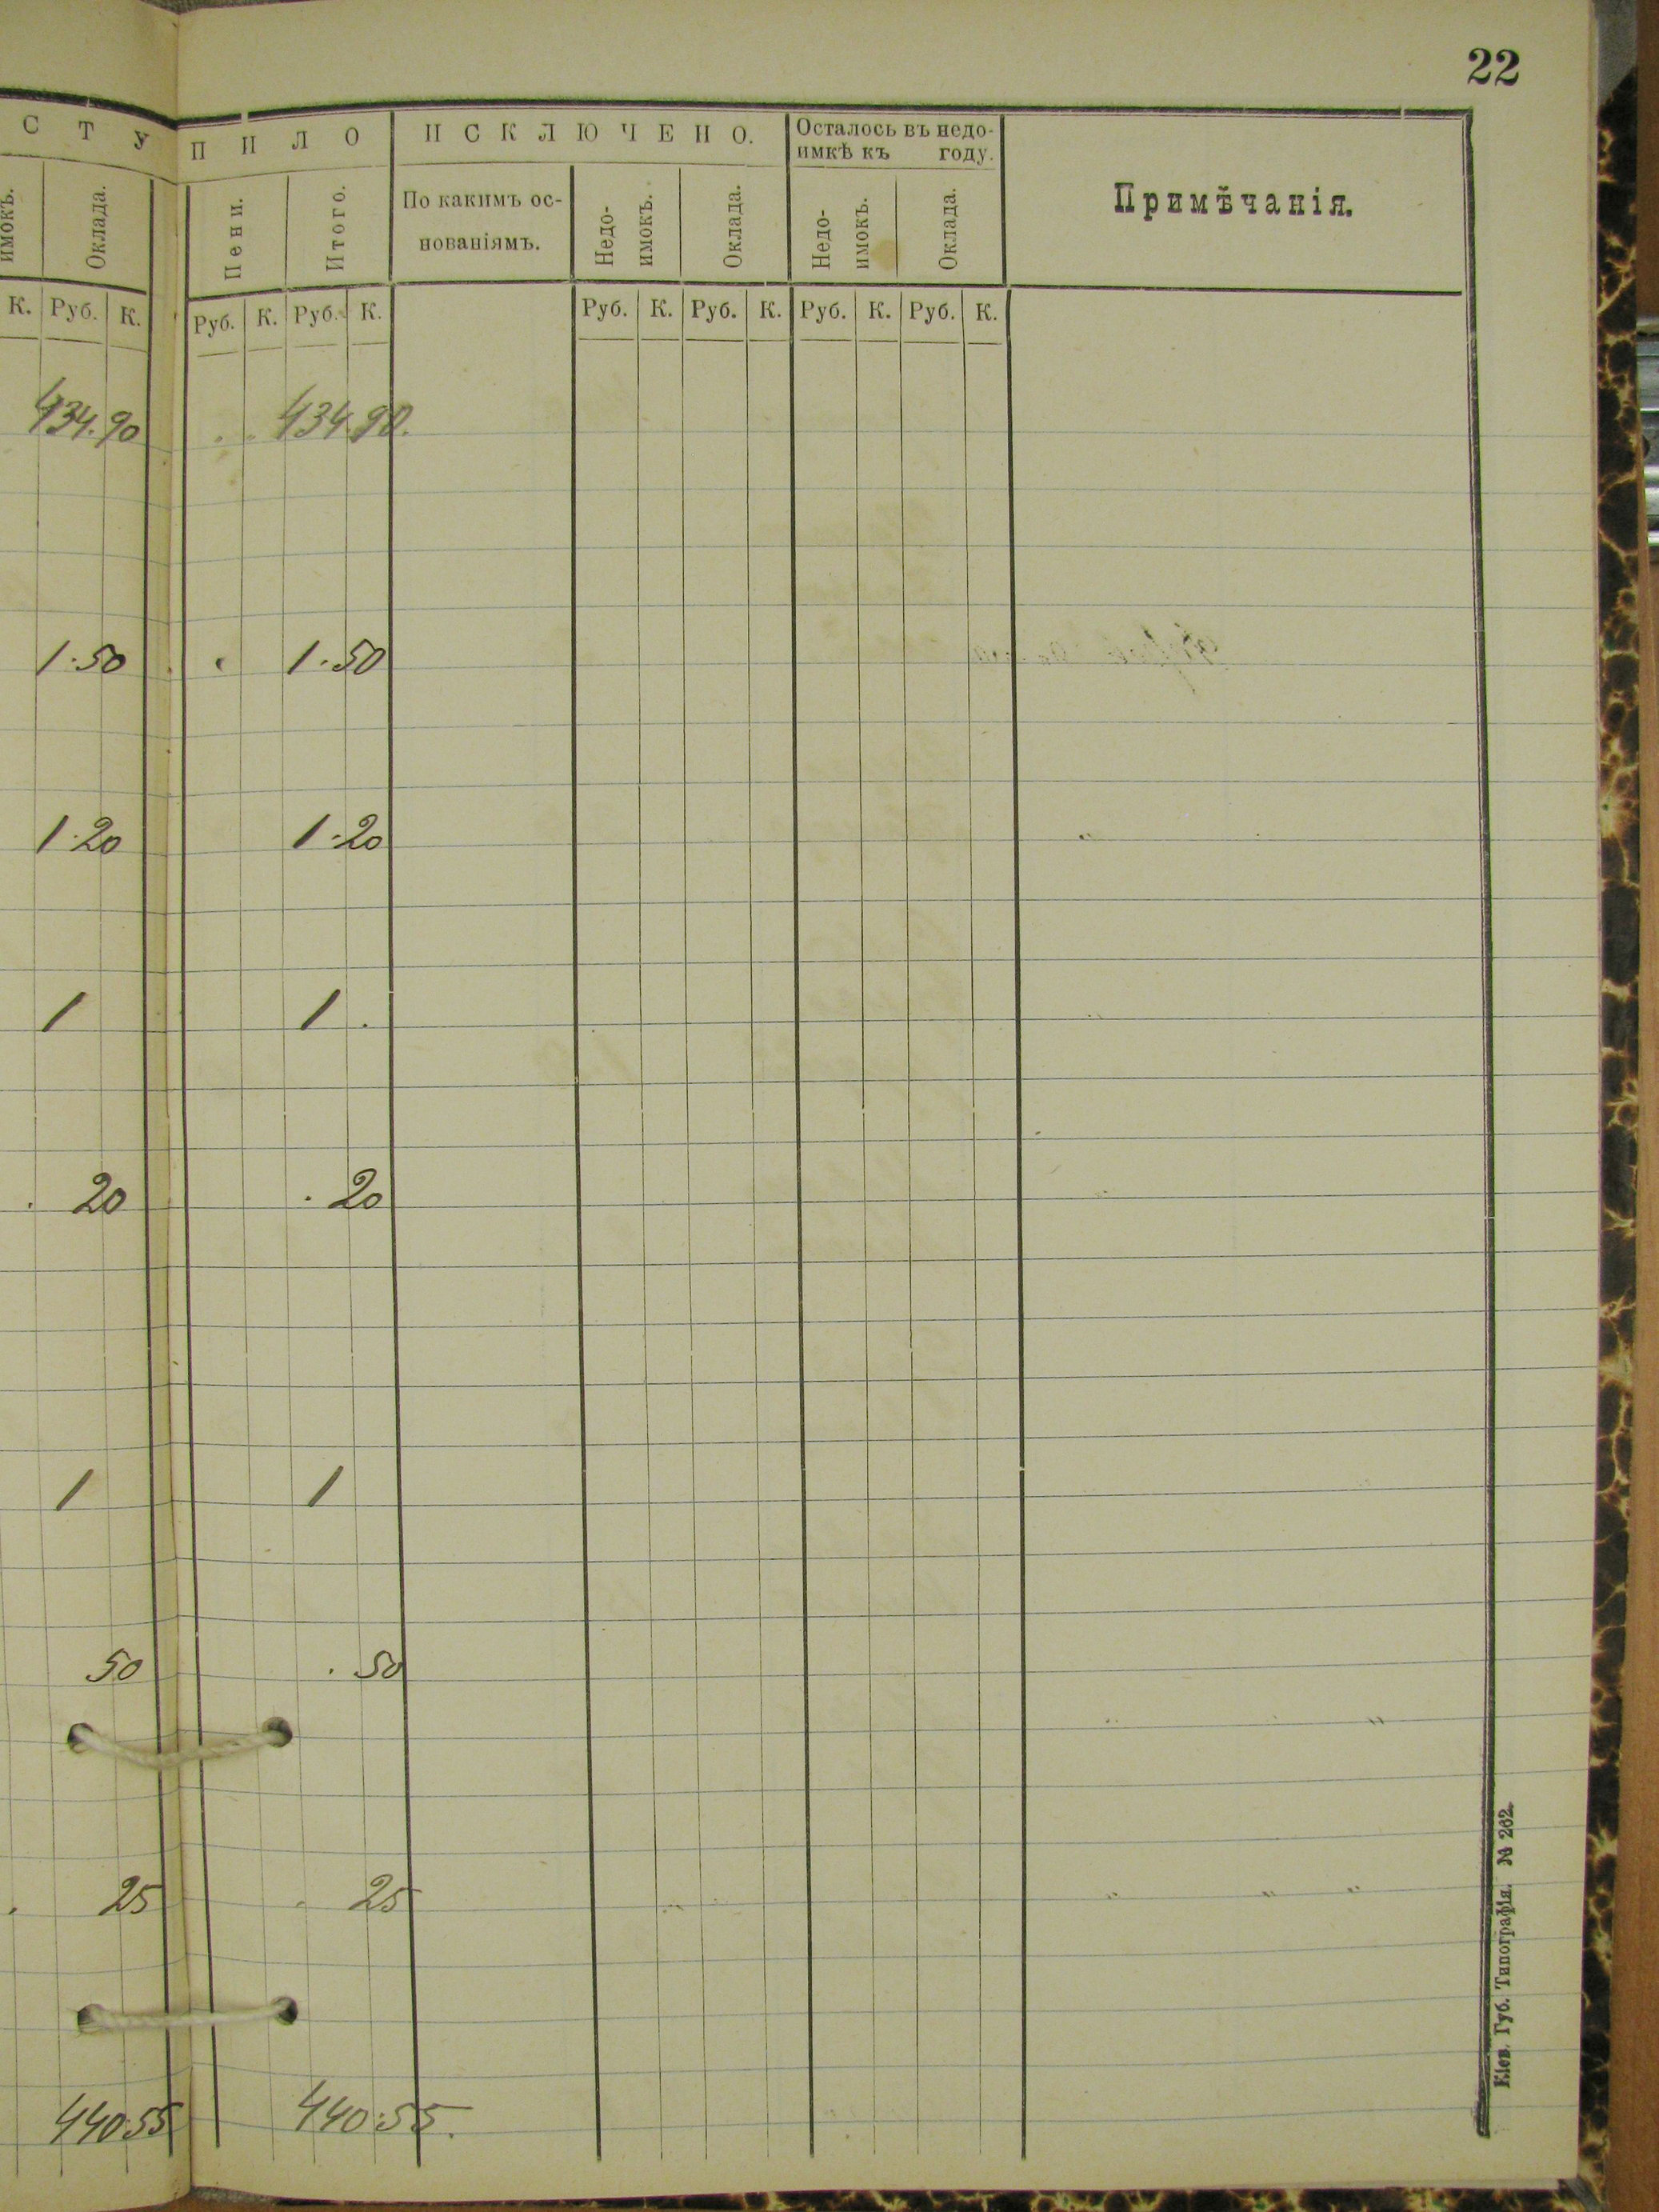 22
СТУПИЛО ИСКЛЮЧЕНО. Осталось въ недо-
имкѣ къ году.
имокъ. Оклада. Пени. Итого. По какимъ ос-
нованіямъ. Недо-
имокъ. Оклада. Недо-
имокъ. Оклада. Примѣчанія.
К. Руб. К. Руб. К. Руб. К. Руб. К. Руб. К. Руб. К. Руб. К.
434.90 434.90.
1.50 1.50
1.20 1.20
1 1
20 20
1 1
50 50
25 25
440.55 440.55.
Кіев. Губ. Типографія. № 262.